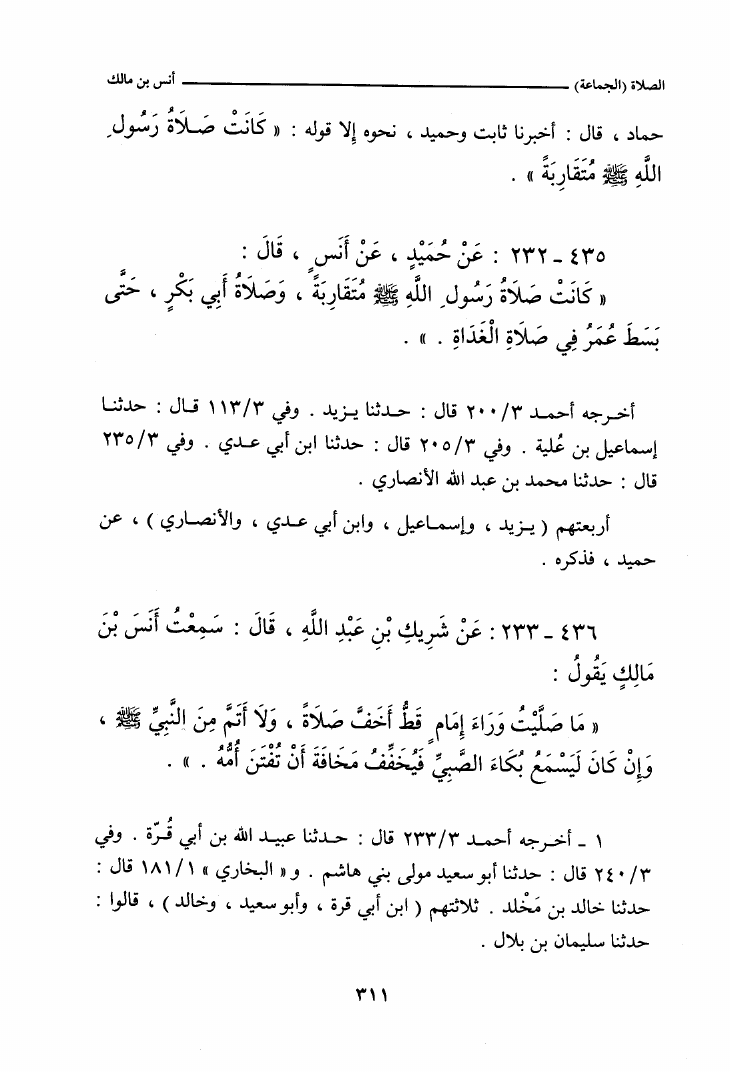 الصلاة (الجماعة) ـــــــــــــــــ أنس بن مالك
حماد ، قال : أخبرنا ثابت وحميد ، نحوه إلا قوله : « كَانَتْ صَلَاةُ رَسُولِ
اللَّهِ ﷺ مُتَقَارِبَةً » .
٤٣٥ - ٢٣٢ : عَنْ حُمَيْدٍ ، عَنْ أَنَسٍ ، قَالَ :
« كَانَتْ صَلَاةُ رَسُولِ اللَّهِ ﷺ مُتَقَارِبَةً ، وَصَلَاةُ أَبِي بَكْرٍ ، حَتَّى
بَسَطَ عُمَرُ فِي صَلَاةِ الْغَدَاةِ . » .
أخرجه أحمد ٢٠٠/٣ قال : حدثنا يزيد . وفي ١١٣/٣ قال : حدثنا
إسماعيل بن عُلية . وفي ٢٠٥/٣ قال : حدثنا ابن أبي عدي . وفي ٢٣٥/٣
قال : حدثنا محمد بن عبد الله الأنصاري .
أربعتهم ( يزيد ، وإسماعيل ، وابن أبي عدي ، والأنصاري ) ، عن
حميد ، فذكره .
٤٣٦ - ٢٣٣ : عَنْ شَرِيكِ بْنِ عَبْدِ اللَّهِ ، قَالَ : سَمِعْتُ أَنَسَ بْنَ
مَالِكٍ يَقُولُ :
« مَا صَلَّيْتُ وَرَاءَ إِمَامٍ قَطُّ أَخَفَّ صَلَاةً ، وَلَا أَتَمَّ مِنَ النَّبِيِّ ﷺ ،
وَإِنْ كَانَ لَيَسْمَعُ بُكَاءَ الصَّبِيِّ فَيُخَفِّفُ مَخَافَةَ أَنْ تُفْتَنَ أُمُّهُ . » .
١ - أخرجه أحمد ٢٣٣/٣ قال : حدثنا عبيد الله بن أبي قُرّة . وفي
٢٤٠/٣ قال : حدثنا أبو سعيد مولى بني هاشم . و« البخاري » ١٨١/١ قال :
حدثنا خالد بن مَخْلد . ثلاثتهم ( ابن أبي قرة ، وأبو سعيد ، وخالد ) ، قالوا :
حدثنا سليمان بن بلال .
٣١١